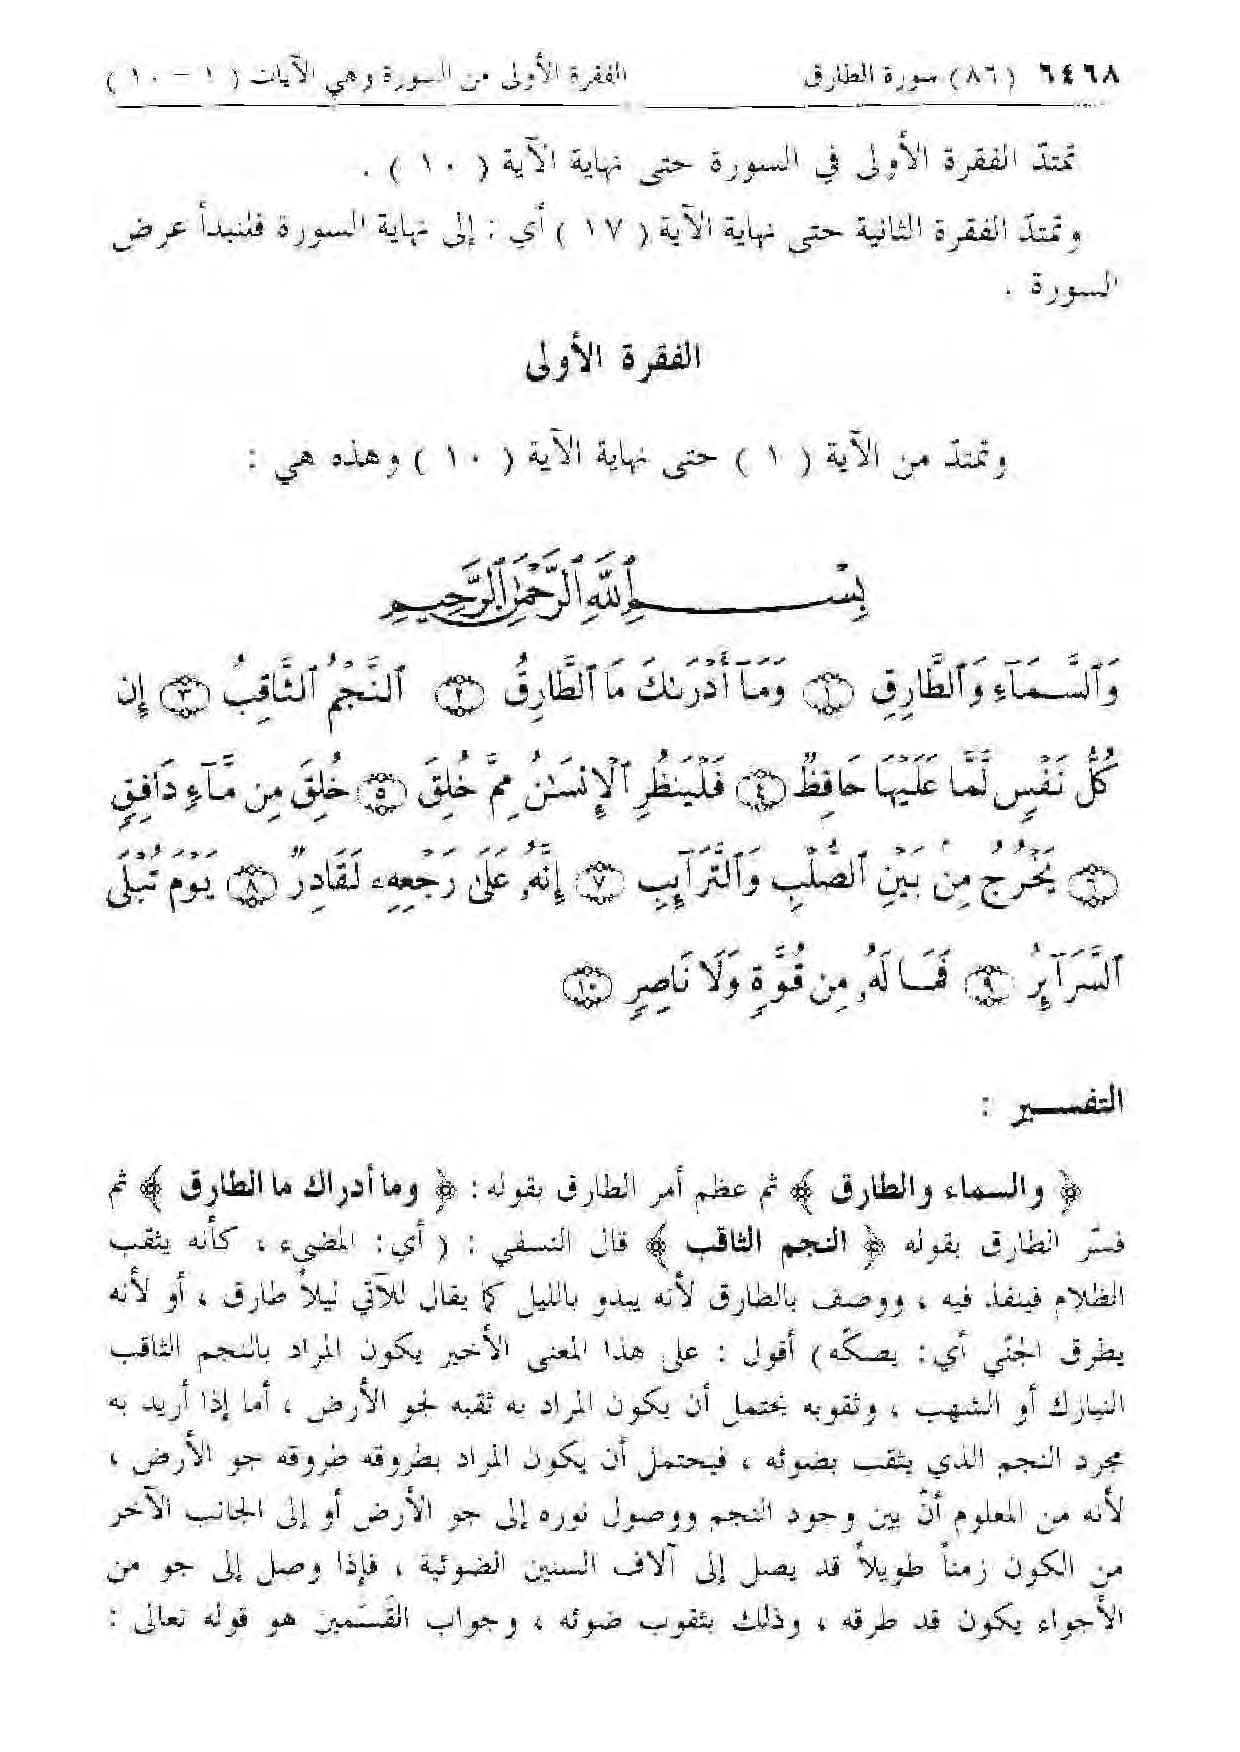 ٦٤٦٨ (٨٦) سورة الطارق الفقرة الأولى من السورة وهي الآيات (١ - ١٠)
تمتدّ الفقرة الأولى في السورة حتى نهاية الآية (١٠) .
وتمتدّ الفقرة الثانية حتى نهاية الآية (١٧) أي : إلى نهاية السورة فلنبدأ عرض
السورة .
الفقرة الأولى
وتمتدّ من الآية (١) حتى نهاية الآية (١٠) وهذه هي :
بِسْمِ ٱللَّهِ ٱلرَّحْمَٰنِ ٱلرَّحِيمِ
وَٱلسَّمَآءِ وَٱلطَّارِقِ ١ وَمَآ أَدْرَىٰكَ مَا ٱلطَّارِقُ ٢ ٱلنَّجْمُ ٱلثَّاقِبُ ٣ إِن
كُلُّ نَفْسٍ لَّمَّا عَلَيْهَا حَافِظٌ ٤ فَلْيَنظُرِ ٱلْإِنسَٰنُ مِمَّ خُلِقَ ٥ خُلِقَ مِن مَّآءٍ دَافِقٍ
٦ يَخْرُجُ مِنۢ بَيْنِ ٱلصُّلْبِ وَٱلتَّرَآئِبِ ٧ إِنَّهُۥ عَلَىٰ رَجْعِهِۦ لَقَادِرٌ ٨ يَوْمَ تُبْلَى
ٱلسَّرَآئِرُ ٩ فَمَا لَهُۥ مِن قُوَّةٍ وَلَا نَاصِرٍ ١٠
التفسير :
﴿ والسماء والطارق ﴾ ثم عظم أمر الطارق بقوله : ﴿ وما أدراك ما الطارق ﴾ ثم
فسّر الطارق بقوله ﴿ النجم الثاقب ﴾ قال النسفي : ( أي : المضيء ، كأنه يثقب
الظلام فينفذ فيه ، ووصف بالطارق لأنه يبدو بالليل كما يقال للآتي ليلاً طارق ، أو لأنه
يطرق الجنّي أي : يصكّه ) أقول : على هذا المعنى الأخير يكون المراد بالنجم الثاقب
النيازك أو الشهب ، وثقوبه يحتمل أن يكون المراد به ثقبه لجو الأرض ، أما إذا أريد به
مجرد النجم الذي يثقب بضوئه ، فيحتمل أن يكون المراد بطروقه طروقه جو الأرض ،
لأنه من المعلوم أنّ بين وجود النجم ووصول نوره إلى جو الأرض أو إلى الجانب الآخر
من الكون زمناً طويلاً قد يصل إلى آلاف السنين الضوئية ، فإذا وصل إلى جو من
الأجواء يكون قد طرقه ، وذلك بثقوب ضوئه ، وجواب القَسَمين هو قوله تعالى :